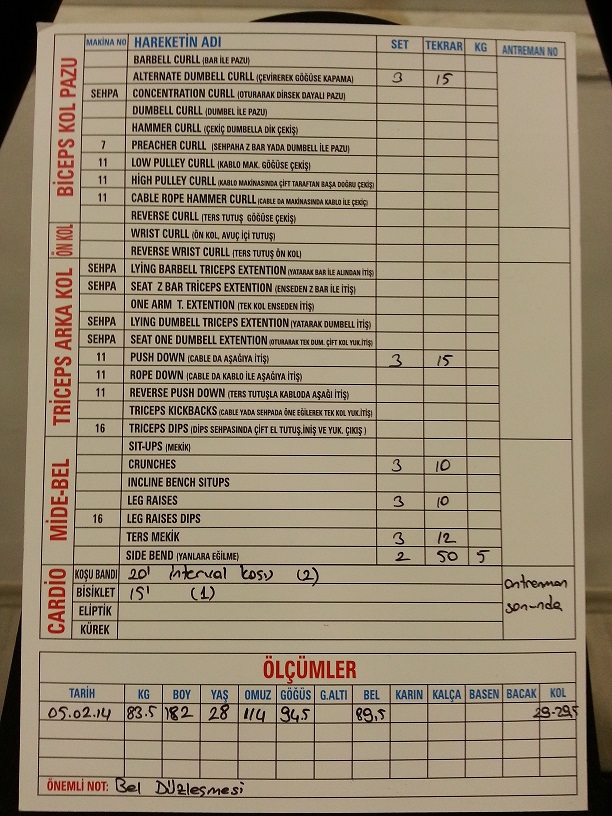 MAKİNA NO HAREKETİN ADI SET TEKRAR KG ANTREMAN NO
BİCEPS KOL PAZU
BARBELL CURLL (BAR İLE PAZU)
ALTERNATE DUMBELL CURLL (ÇEVİREREK GÖĞÜSE KAPAMA) 3 15
SEHPA CONCENTRATION CURLL (OTURARAK DİRSEK DAYALI PAZU)
DUMBELL CURLL (DUMBEL İLE PAZU)
HAMMER CURLL (ÇEKİÇ DUMBELLA DİK ÇEKİŞ)
7 PREACHER CURLL (SEHPAHA Z BAR YADA DUMBELL İLE PAZU)
11 LOW PULLEY CURLL (KABLO MAK. GÖĞÜSE ÇEKİŞ)
11 HİGH PULLEY CURLL (KABLO MAKİNASINDA ÇİFT TARAFTAN BAŞA DOĞRU ÇEKİŞ)
11 CABLE ROPE HAMMER CURLL (CABLE DA MAKİNASINDA KABLO İLE ÇEKİÇ)
REVERSE CURLL (TERS TUTUŞ GÖĞÜSE ÇEKİŞ)
ÖN KOL
WRIST CURLL (ÖN KOL, AVUÇ İÇİ TUTUŞ)
REVERSE WRIST CURLL (TERS TUTUŞ ÖN KOL)
TRİCEPS ARKA KOL
SEHPA LYİNG BARBELL TRICEPS EXTENTION (YATARAK BAR İLE ALINDAN İTİŞ)
SEHPA SEAT Z BAR TRİCEPS EXTENTION (ENSEDEN Z BAR İLE İTİŞ)
ONE ARM T. EXTENTION (TEK KOL ENSEDEN İTİŞ)
SEHPA LYING DUMBELL TRICEPS EXTENTION (YATARAK DUMBELL İTİŞ)
SEHPA SEAT ONE DUMBELL EXTENTION (OTURARAK TEK DUM. ÇİFT KOL YUK.İTİŞ)
11 PUSH DOWN (CABLE DA AŞAĞIYA İTİŞ) 3 15
11 ROPE DOWN (CABLE DA KABLO İLE AŞAĞIYA İTİŞ)
11 REVERSE PUSH DOWN (TERS TUTUŞLA KABLODA AŞAĞI İTİŞ)
TRICEPS KICKBACKS (CABLE YADA SEHPADA ÖNE EĞİLEREK TEK KOL YUK.İTİŞ)
16 TRICEPS DIPS (DİPS SEHPASINDA ÇİFT EL TUTUŞ,İNİŞ VE YUK. ÇIKIŞ )
MİDE-BEL
SIT-UPS (MEKİK)
CRUNCHES 3 10
INCLINE BENCH SITUPS
LEG RAISES 3 10
16 LEG RAISES DIPS
TERS MEKİK 3 12
SIDE BEND (YANLARA EĞİLME) 2 50 5
CARDİO
KOŞU BANDI 20' interval koşu (2)
BİSİKLET 15' (1)
ELİPTİK
KÜREK
antreman
sonunda
ÖLÇÜMLER
TARİH KG BOY YAŞ OMUZ GÖĞÜS G.ALTI BEL KARIN KALÇA BASEN BACAK KOL
05.02.14 83.5 182 28 114 94,5 89,5 29-29,5
ÖNEMLİ NOT: Bel Düzleşmesi